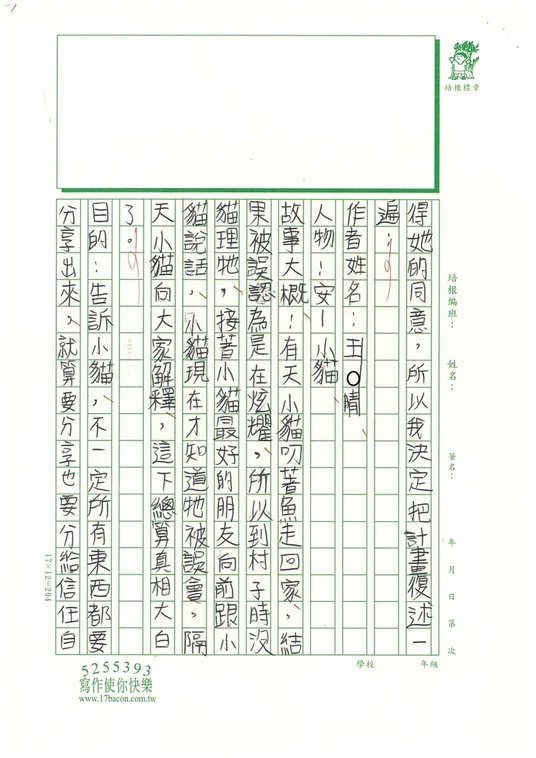 得她的同意，所以我決定把計畫覆述一
遍：
作者姓名：王○晴
人物：安—小貓
故事大概：有天小貓叨著魚走回家，結
果被誤認為是在炫耀，所以到村子時沒
貓理牠，接著小貓最好的朋友向前跟小
貓說話，小貓現在才知道牠被誤會，隔
天小貓向大家解釋，這下總算真相大白
了。
目的：告訴小貓，不一定所有東西都要
分享出來，就算要分享也要分給信任自
培根標章
培根編班：
姓名：
筆名：
年 月 日 第 次
學校 年級
17×12=204
5255393
寫作使你快樂
www.17bacon.com.tw